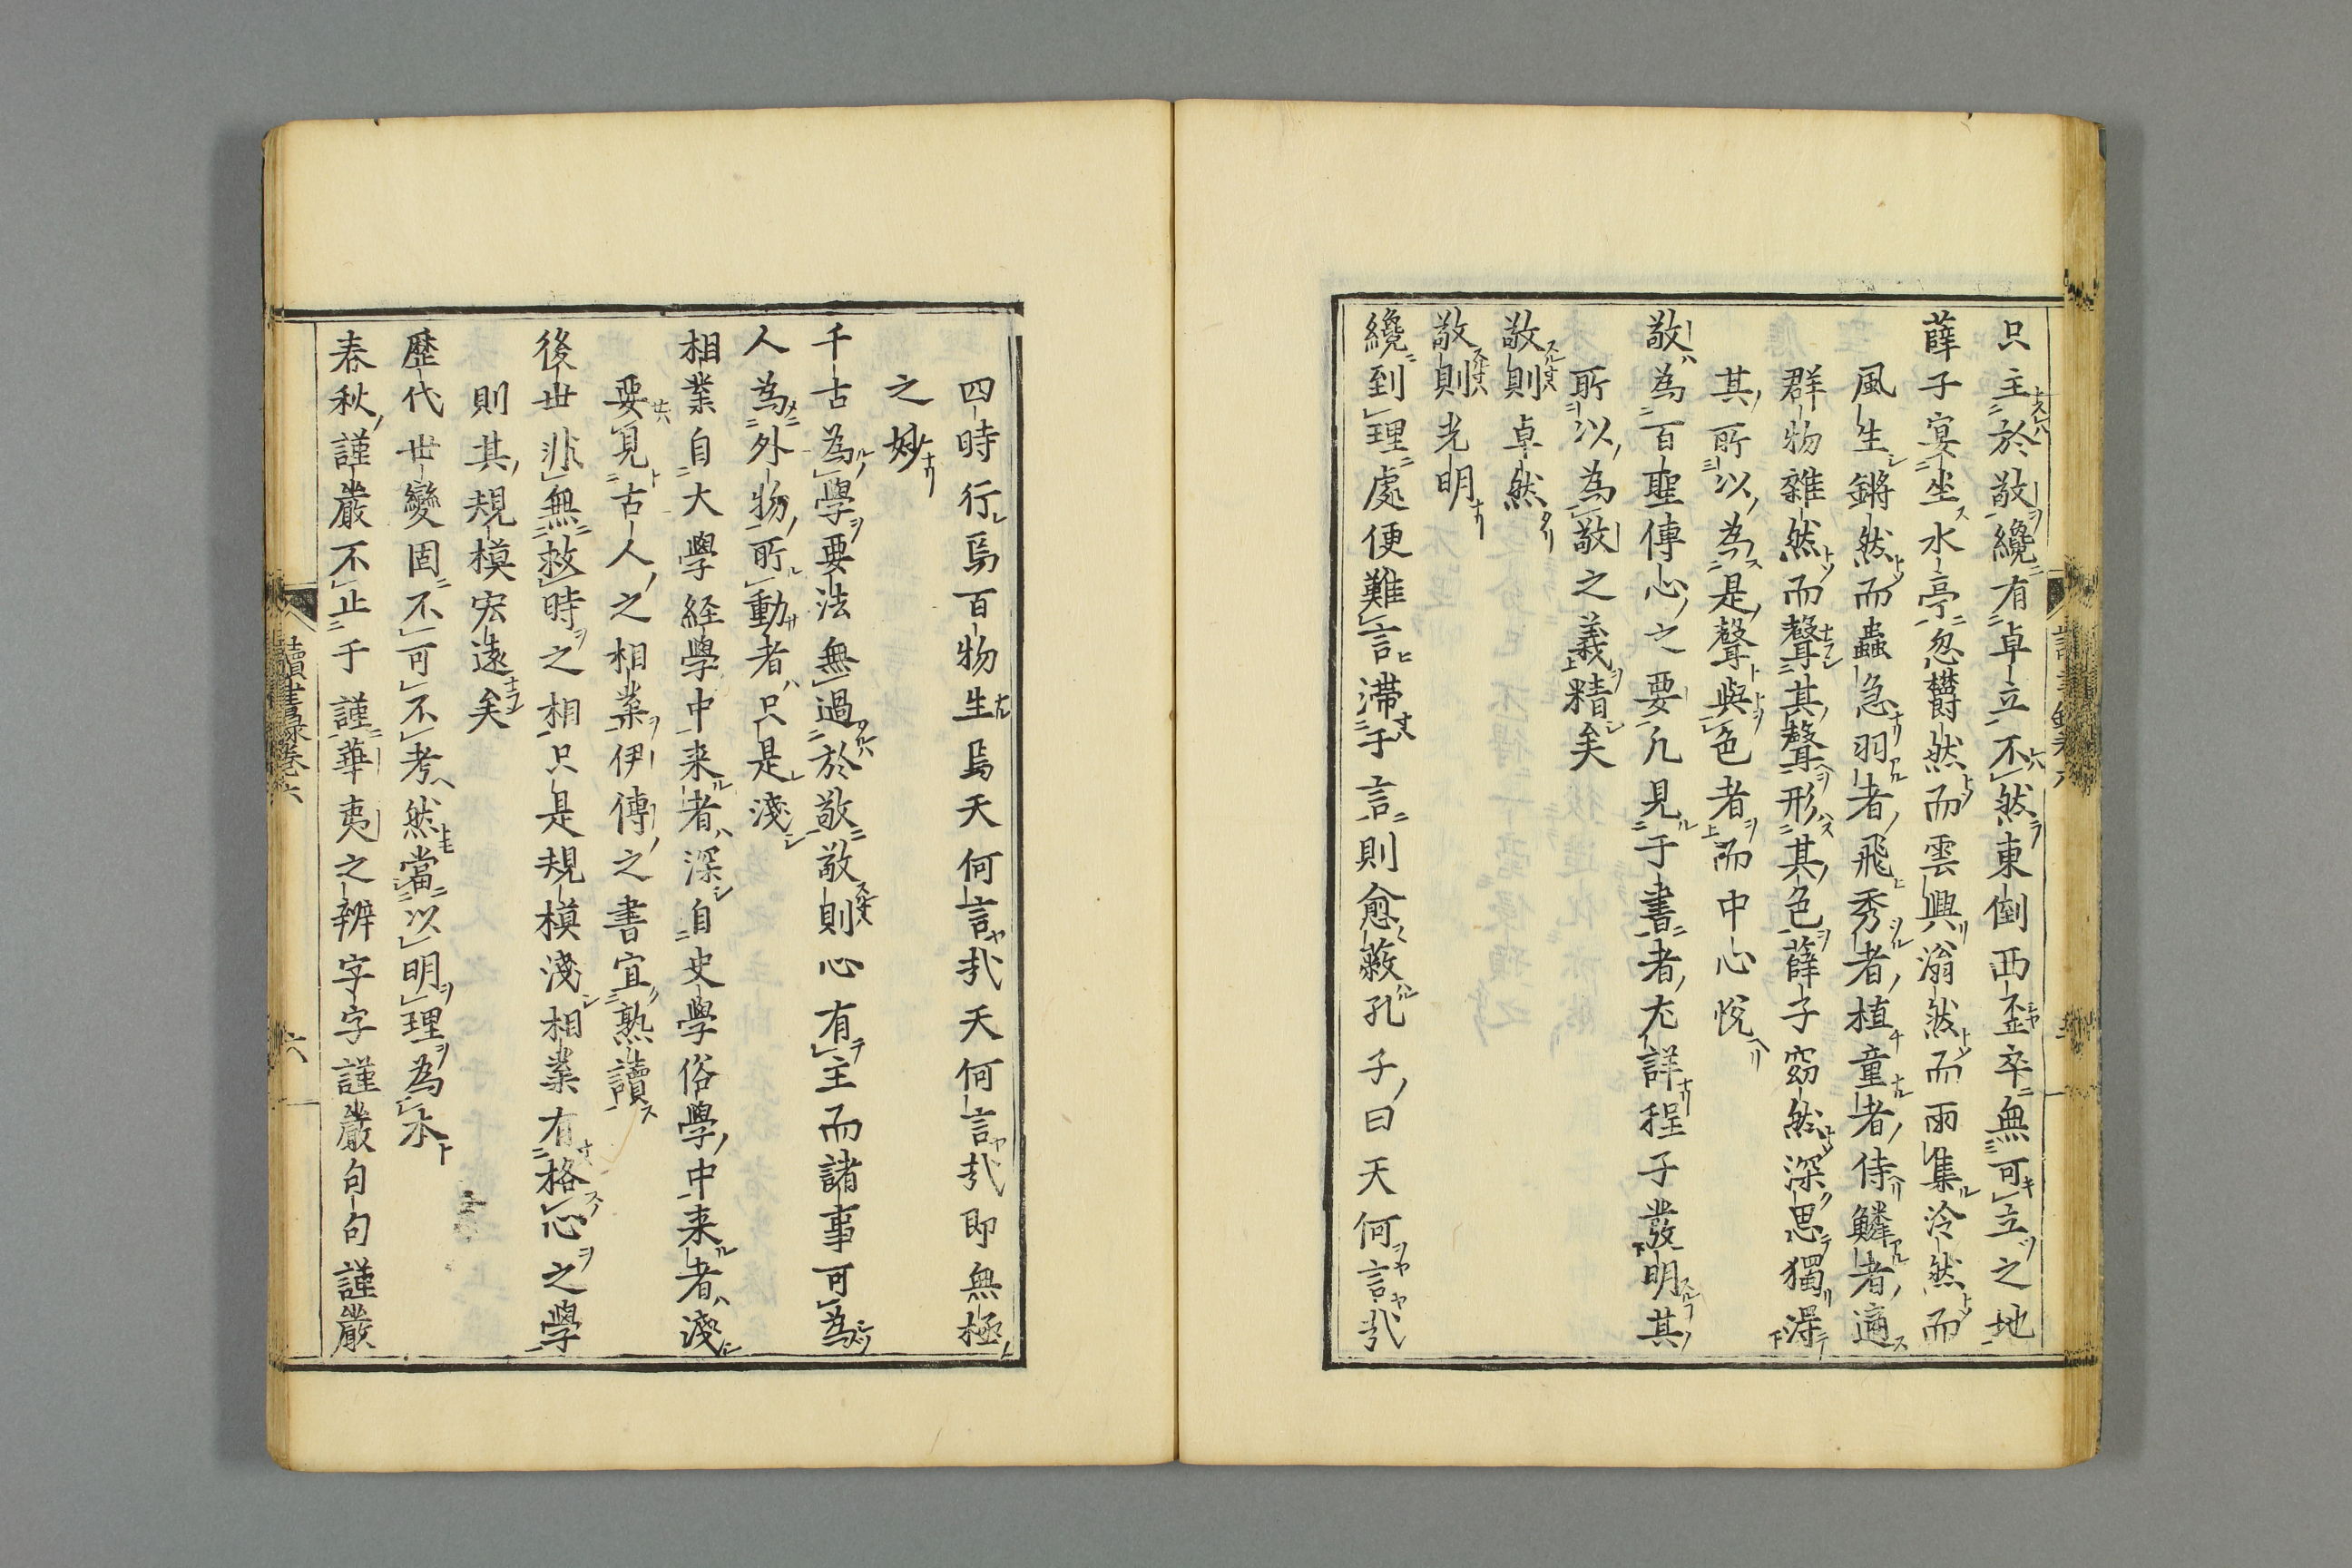 只主於敬纔有卓立不然東倒西歪卒無可立之地
薛子宴坐水亭忽欝然而雲興滃然而雨集泠然而
風生鏘然而蟲急羽者飛秀者植童者侍鱗者適
群物雜然而聲其聲形其色薛子窈然深思獨得
其所以為是聲與色者而中心悅
敬為百聖傳心之要凡見于書者尤詳程子發明其
所以為敬之義精矣
敬則卓然
敬則光明
纔到理處便難言滞于言則愈蔽孔子曰天何言哉
四時行焉百物生焉天何言哉天何言哉即無極
之妙
千古為學要法無過於敬敬則心有主而諸事可為
人為外物所動者只是淺
相業自大學経學中来者深自史學俗學中来者淺
要見古人之相業伊傳之書宜熟讀
後世非無救時之相只是規模淺相業有格心之學
則其規模宏遠矣
歷代世變固不可不考然當以明理為本
春秋謹嚴不止于謹華夷之辨字字謹嚴句句謹嚴
讀書録卷六
六